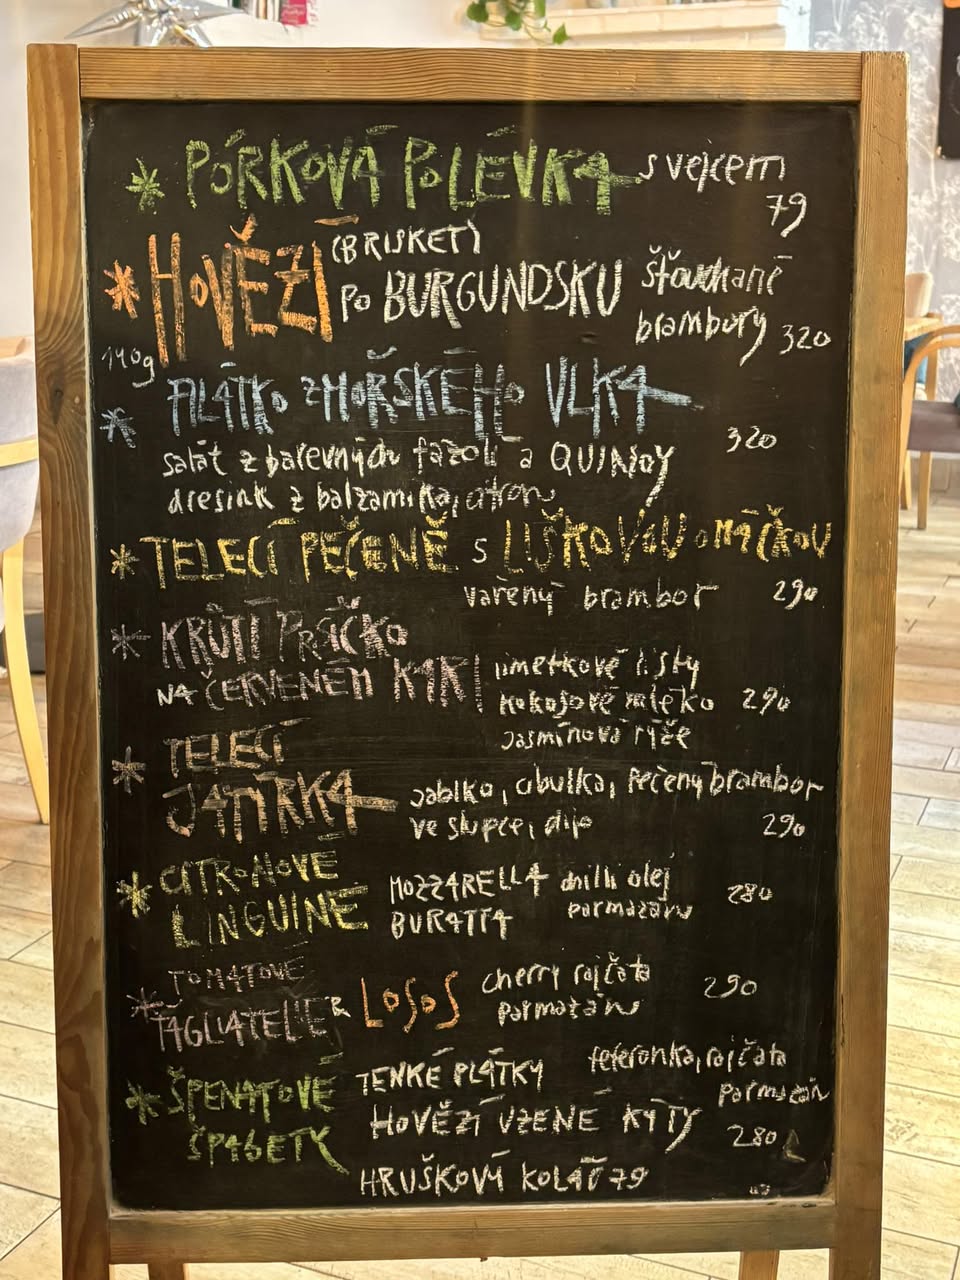 * PÓRKOVÁ POLÉVKA s vejcem
79
* HOVĚZÍ (BRISKET)
po BURGUNDSKU šťouchané
brambory 320
140g
* FILÁTKO Z MOŘSKÉHO VLKA
320
salát z barevných fazolí a QUINOY
dresink z balzamika, citron
* TELECÍ PEČENĚ s LIŠKOVOU OMÁČKOU
vařený brambor 290
* KRŮTÍ PRSÍČKO
NA ČERVENÉM KARI limetkové listy
kokosové mléko 290
Jasmínová rýže
* TELECÍ
JATÝRKA jablko, cibulka, pečený brambor
ve slupce, dijo 290
* CITRONOVÉ
LINGUINE MOZZARELLA chilli olej 280
BURATTA parmazán
* TOMATOVÉ
TAGLIATELLE & LOSOS cherry rajčata 290
parmazán
* ŠPENÁTOVÉ
ŠPAGETY TENKÉ PLÁTKY feferonka, rajčata
HOVĚZÍ UZENÉ KÝTY parmazán
280
HRUŠKOVÝ KOLÁČ 79